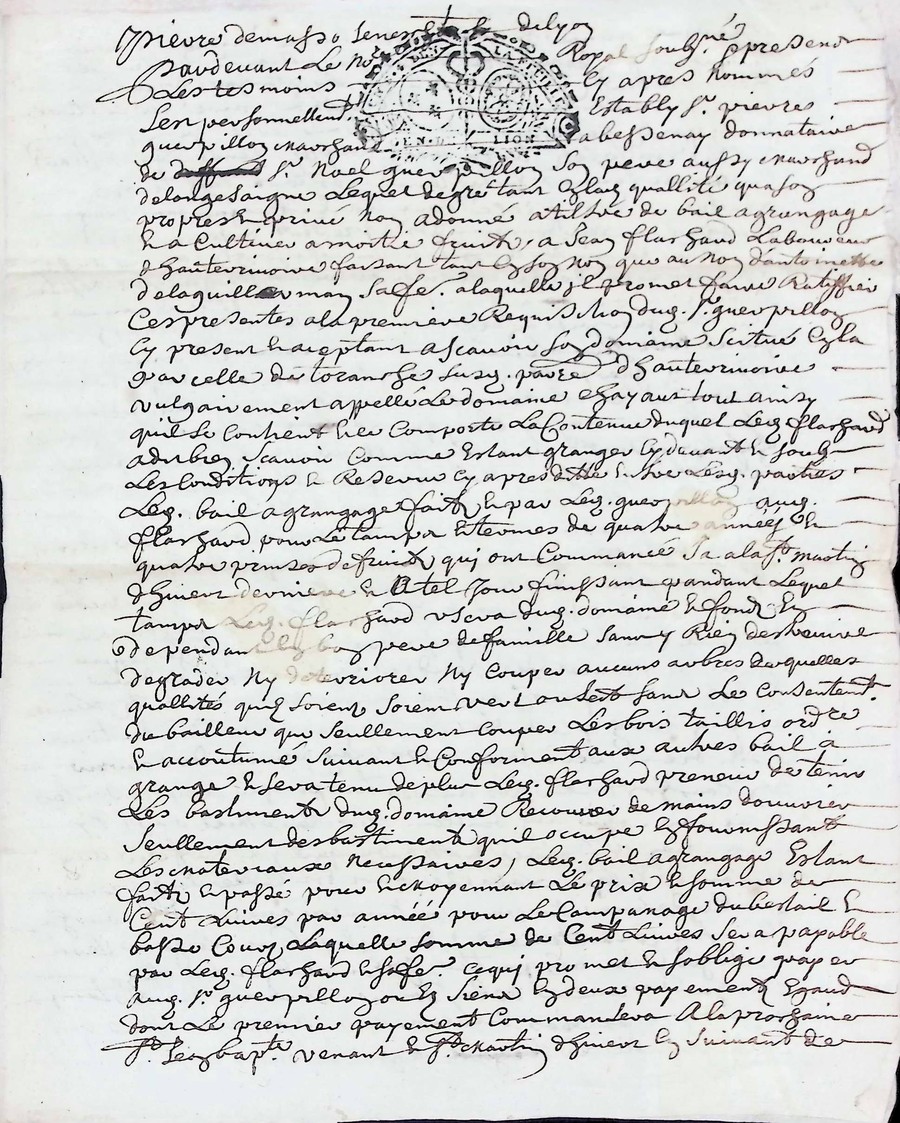 pierre demasso senes de lyon
Pardevant Le No.re Royal soubz.né presens
Les tesmoins cy apres nommés
EN DE LION
personnellem.t Estably s.r pierres
guerpillon marchand a bessenay donnataire
de s.r Noel guerpillon son pere aussy marchand
delongesaigne Lequel degré tant en lad. quallité qua son
propre et privé nom a donné a tiltre de bail a grangage
et a Cultiver a moitié fruits a Jean flachard Laboureur
dhauterivoire faisant tant en son nom que au nom dantoinette
delaquille sa fe. a laquelle il promet faire Ratiffier
Ces presentes a la premiere Requisition dud. s.r guerpillon
Cy present et aceptant ascavoir son domaine scitué en la
parcelle de toranche susd. par.sse dhauterivoire
vulgairement appellé Le domaine chayaut tout ainsy
quil se contient et se comporte La Contenue duquel Led. flachard
a dit bien scavoir comme Estant granger cy devant et soubz
Les Conditions et Reserves cy apres dittes entre Lesd. parties
Led. bail a grangage fait et par Led. guerpillon aud.
flachard pour Le tamps et termes de quatre années et
quatre prises de fruits qui ont Commancé Ja a la s.t martin
dhivert derniere et a tel Jour finissant pandant Lequel
tamps Led. flachard usera dud. domaine et fonds en
dependant en bon pere de famille sans y Rien destruire
degrader Ny deterriorer Ny couper aucuns arbres de quelles
quallités quils soient soient vert ou sect sans Le Consentem.t
du bailleur que seullement couper Les bois taillis ordre
et accoutumé suivant et Conforment aux autres bail a
grange et sera tenu de plus Led. flachard preneur de tenir
Les bastiments dud. domaine Recouver de mains douvrier
seullement des bastiments quil occupe en fournissant
Les materiaux necessaires, Led. bail a grangage Estant
fait et passé pour et moyennant Le prix et somme de
Cent Livres par année pour Le Campanage du bestail et
basse Cour Laquelle somme de Cent Livres sera payable
par Led. flachard et sa fe. ce qui promet et soblige payer
aud. s.r guerpillon ou es siens en deux payements Egaux
dont Le premier payement Commancera A la prochaine
s.t Jean bapt.e venant et s.t martin dhivert en suivant de